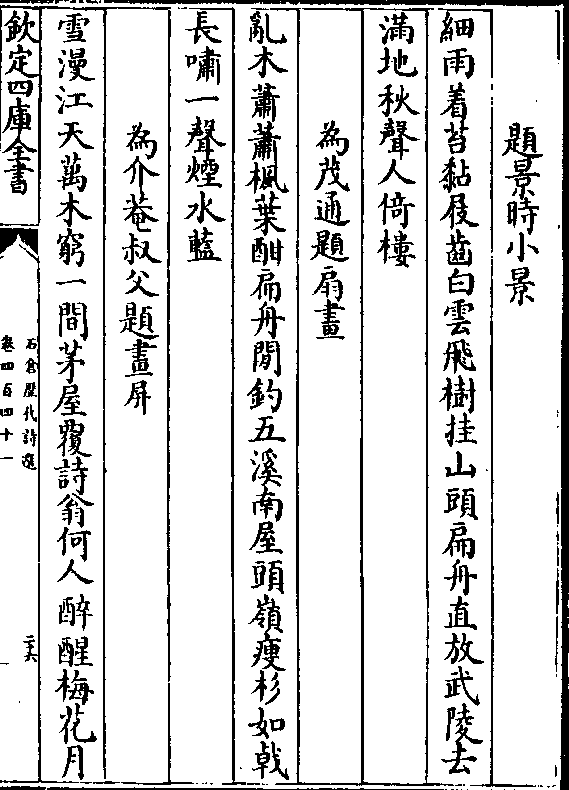 題景時小景
細雨着苔黏屐齒白雲飛樹挂山頭扁舟直放武陵去
滿地秋聲人倚樓
為茂通題扇畫
亂木蕭蕭楓葉酣扁舟閒釣五溪南屋頭嶺瘦杉如㦸
長嘯一聲煙水藍
為介菴叔父題畫屏
雪漫江天萬木窮一間茅屋覆詩翁何人醉醒梅花月
欽定四庫全書
石倉歷代詩選
卷四百四十一
二六